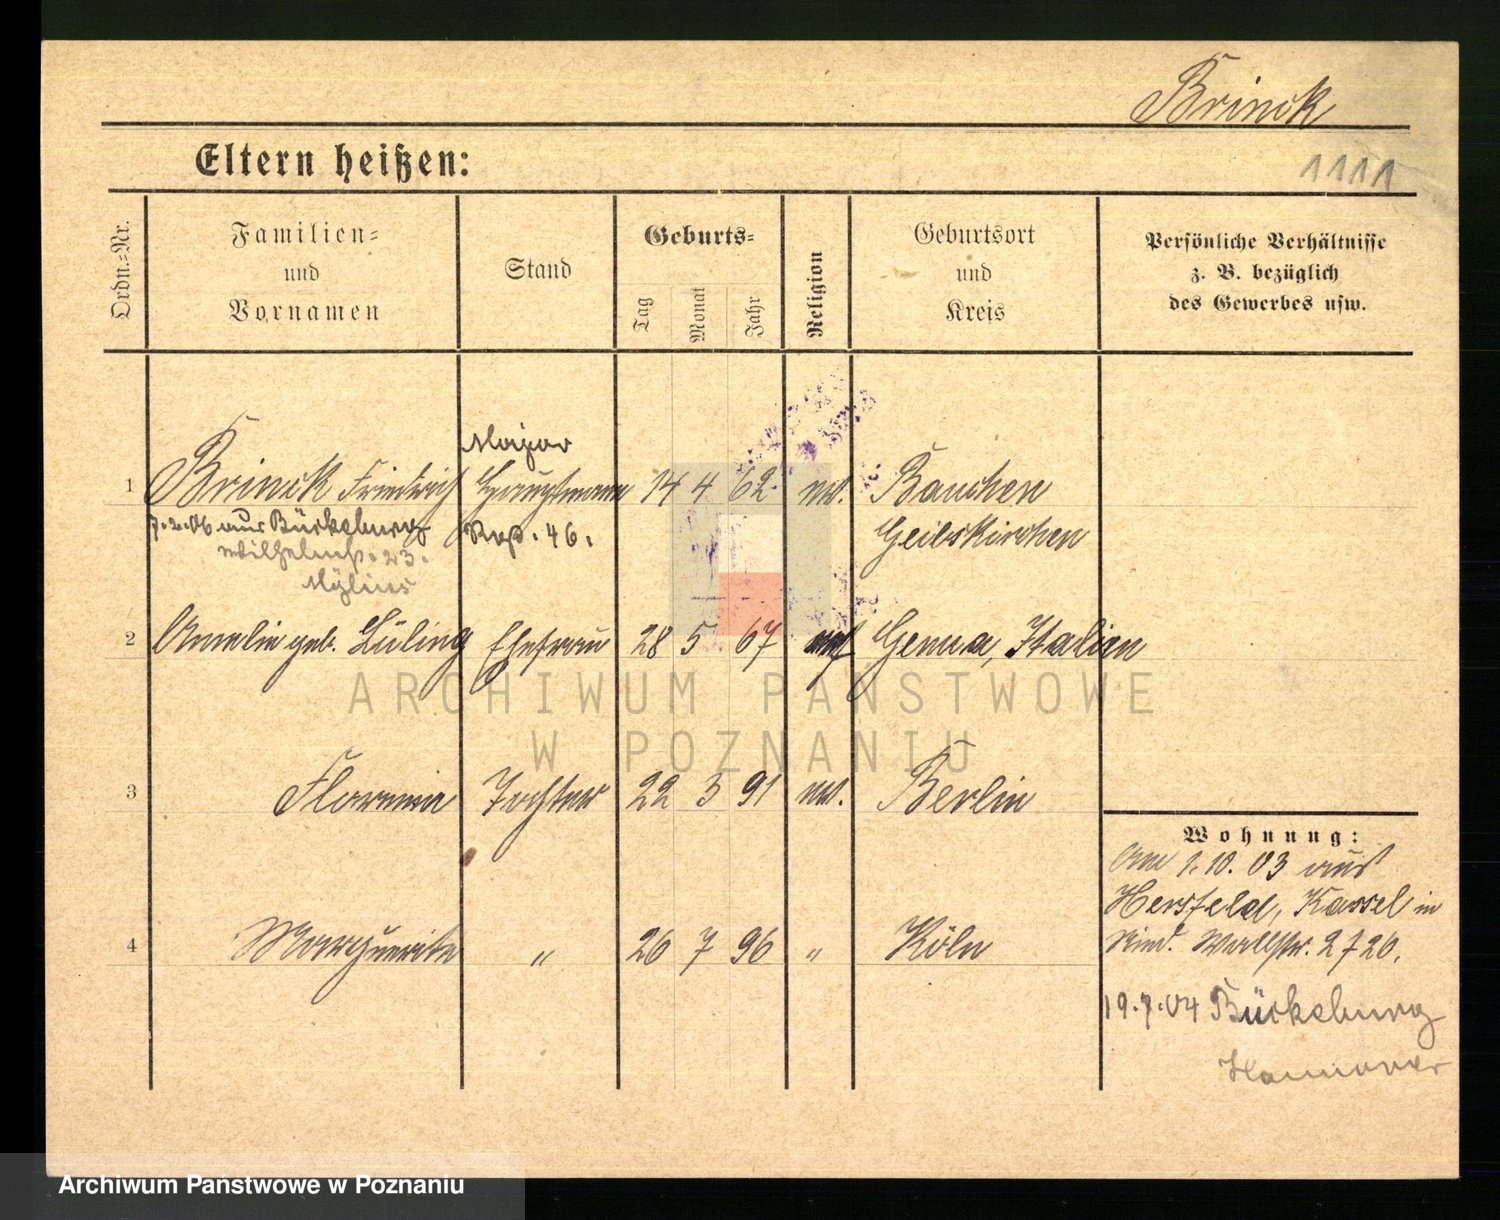 Brinck
Eltern heißen:
1111
Ordn.=Nr.
Familien=
und
Vornamen
Stand
Geburts=
Tag
Monat
Jahr
Religion
Geburtsort
und
Kreis
Persönliche Verhältnisse
z. B. bezüglich
des Gewerbes usw.
Major
1 Brinck Friedrich Hauptmann 14 4 62 ev. Bauchem
7.2.06 aus Bückeburg Reg. 46. Geilskirchen
Wilhelmstr. 23.
Mylius
2 Amelie geb. Lüling Ehefrau 28 5 67 Genua, Italien
ARCHIWUM PAŃSTWOWE
W POZNANIU
3 Tochter 22 3 91 ev. Berlin
Wohnung:
Am 1.10.03 aus
Hersfeld, Kassel in
4 Marguerite " 26 7 96 " Köln
Wallstr. 2726.
19.7.04 Bückeburg
Hannover
Archiwum Państwowe w Poznaniu